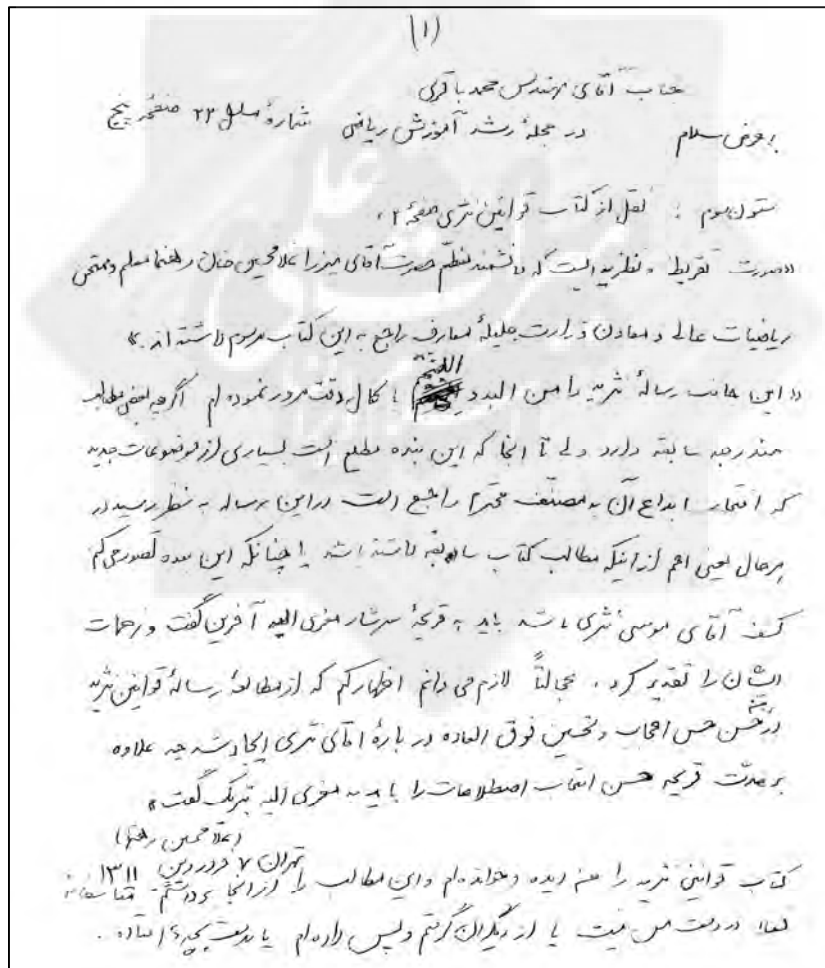 (۱)
جناب آقای مهندس محمد باقری
بعرض سلام در مجلهٔ رشد آموزش ریاضی شمارهٔ مسلسل ۲۳ صفحهٔ پنج
ستون سوم : نقل از کتاب قوانین نثری صفحهٔ ۲،
«صورت تقریظ و نظریه ایست که دانشمند معظم حضرت آقای میرزا غلامحسین خان رهنما معلم و ممتحن
ریاضیات عالی و معاون وزارت جلیلهٔ معارف راجع به این کتاب مرقوم داشته اند.»
«این جانب رسالهٔ نثریه را من البدو الی الختم با کمال دقت مرور نموده ام اگرچه بعضی مطالب
مندرجه سابقه دارد ولی تا آنجا که این بنده مطلع است بسیاری از موضوعات جدید
که افتخار ابداع آن به مصنّف محترم راجع است در این رساله به نظر رسید در
هرحال یعنی اعم از اینکه مطالب کتاب سابقه داشته باشد یا چنانکه این بنده تصور می‌کنم
کشف آقای موسی نثری باشد باید به قریحهٔ سرشار معزی الیه آفرین گفت و زحمات
ایشان را تقدیر کرد. عجالتاً لازم می دانم اظهار کنم که از مطالعهٔ رسالهٔ قوانین نثریه
در من حس اعجاب و تحسین فوق العاده در بارهٔ آقای نثری ایجاد شد چه علاوه
بر حدّت قریحه حسن انتخاب اصطلاحات را باید به معزی الیه تبریک گفت»
(غلامحسین رهنما)
تهران ۷ فروردین ۱۳۱۱
کتاب قوانین نثریه را من دیده و خوانده ام و این مطالب را از آنجا برداشتم متأسفانه
فعلا در دست من نیست یا از دیگران گرفتم و پس داده ام یا بدست بچه ها افتاده.